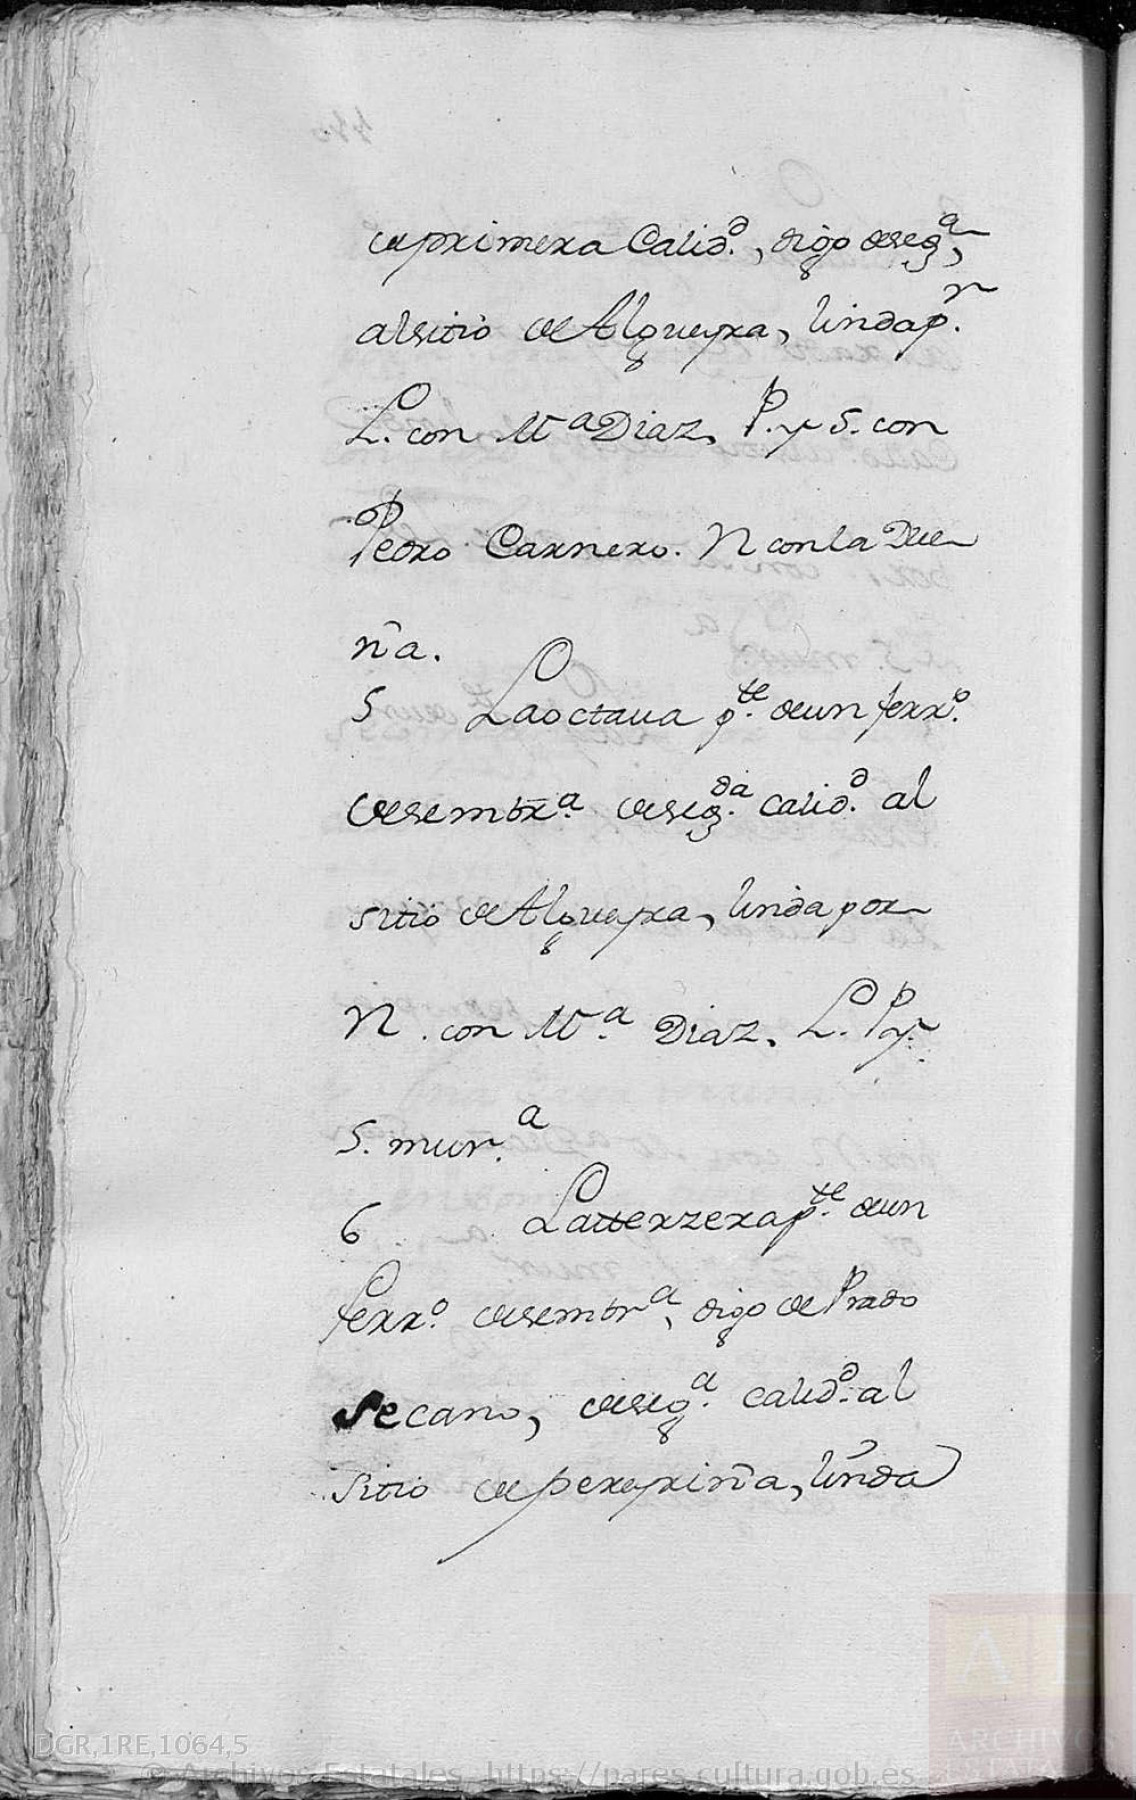 de primera Calid.d, digo de seg.a,
al sitio de Algueyra, linda p.r
L. con M.a Diaz, P. y S. con
Pedro Carnero. N con la Due
ña.
5 La octava p.te de un ferr.o
de sembr.a de seg.da calid.d al
sitio de Algueyra, linda por
N. con M.a Diaz. L. P. y
S. mur.a
6 La tterzera p.te de un
ferr.o de sembr.a, digo de Prado
secano, de seg.a calid.d al
sitio de pereyriña, linda
DGR,1RE,1064,5
© Archivos Estatales, https://pares.cultura.gob.es
AE
ARCHIVOS
ESTATALES